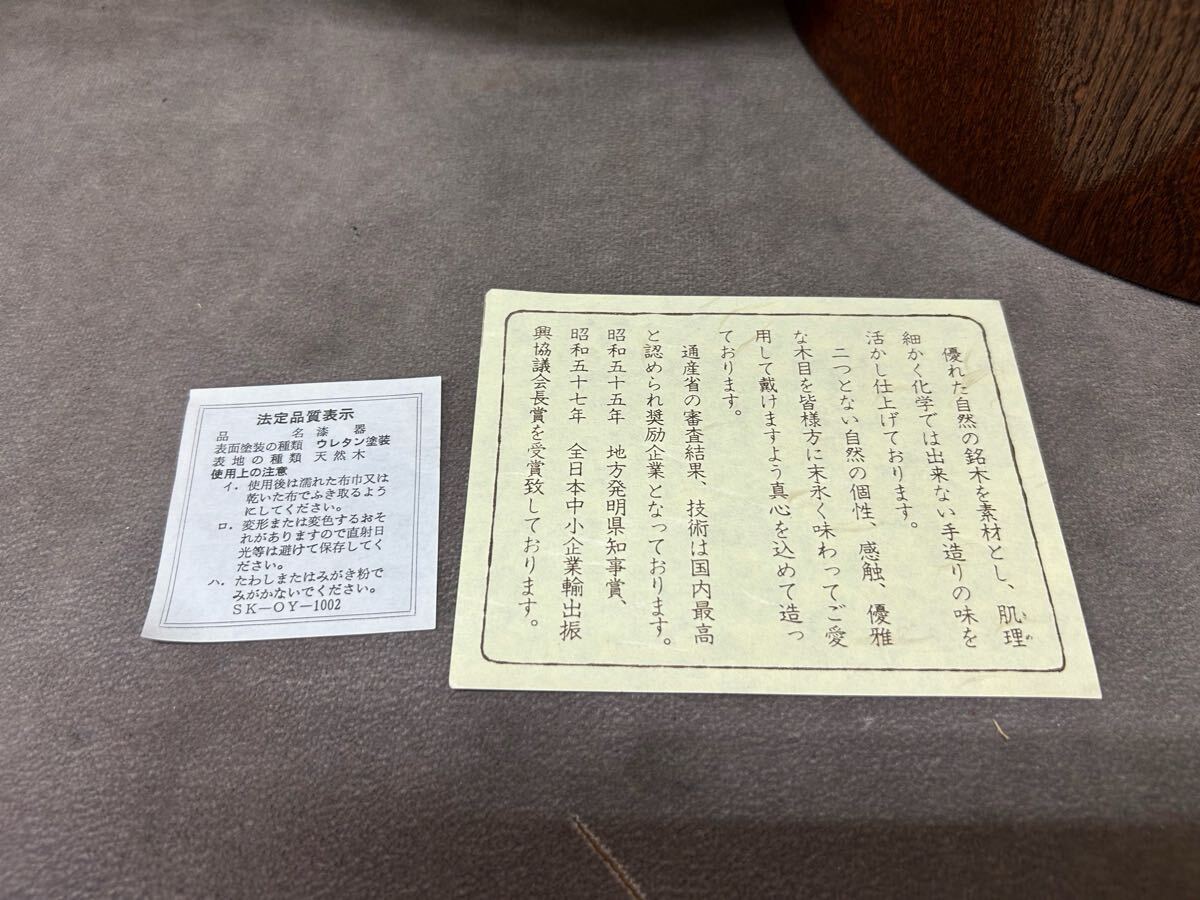 法定品質表示
品名 漆器
表面塗装の種類 ウレタン塗装
表地の種類 天然木
使用上の注意
イ．使用後は濡れた布巾又は
乾いた布でふき取るよう
にしてください。
ロ．変形または変色するおそ
れがありますので直射日
光等は避けて保存してく
ださい。
ハ．たわしまたはみがき粉で
みがかないでください。
SK－OY－1002
優れた自然の銘木を素材とし、肌理きめ
細かく化学では出来ない手造りの味を
活かし仕上げております。
二つとない自然の個性、感触、優雅
な木目を皆様方に末永く味わってご愛
用して戴けますよう真心を込めて造っ
ております。
通産省の審査結果、技術は国内最高
と認められ奨励企業となっております。
昭和五十五年　地方発明県知事賞、
昭和五十七年　全日本中小企業輸出振
興協議会長賞を受賞致しております。